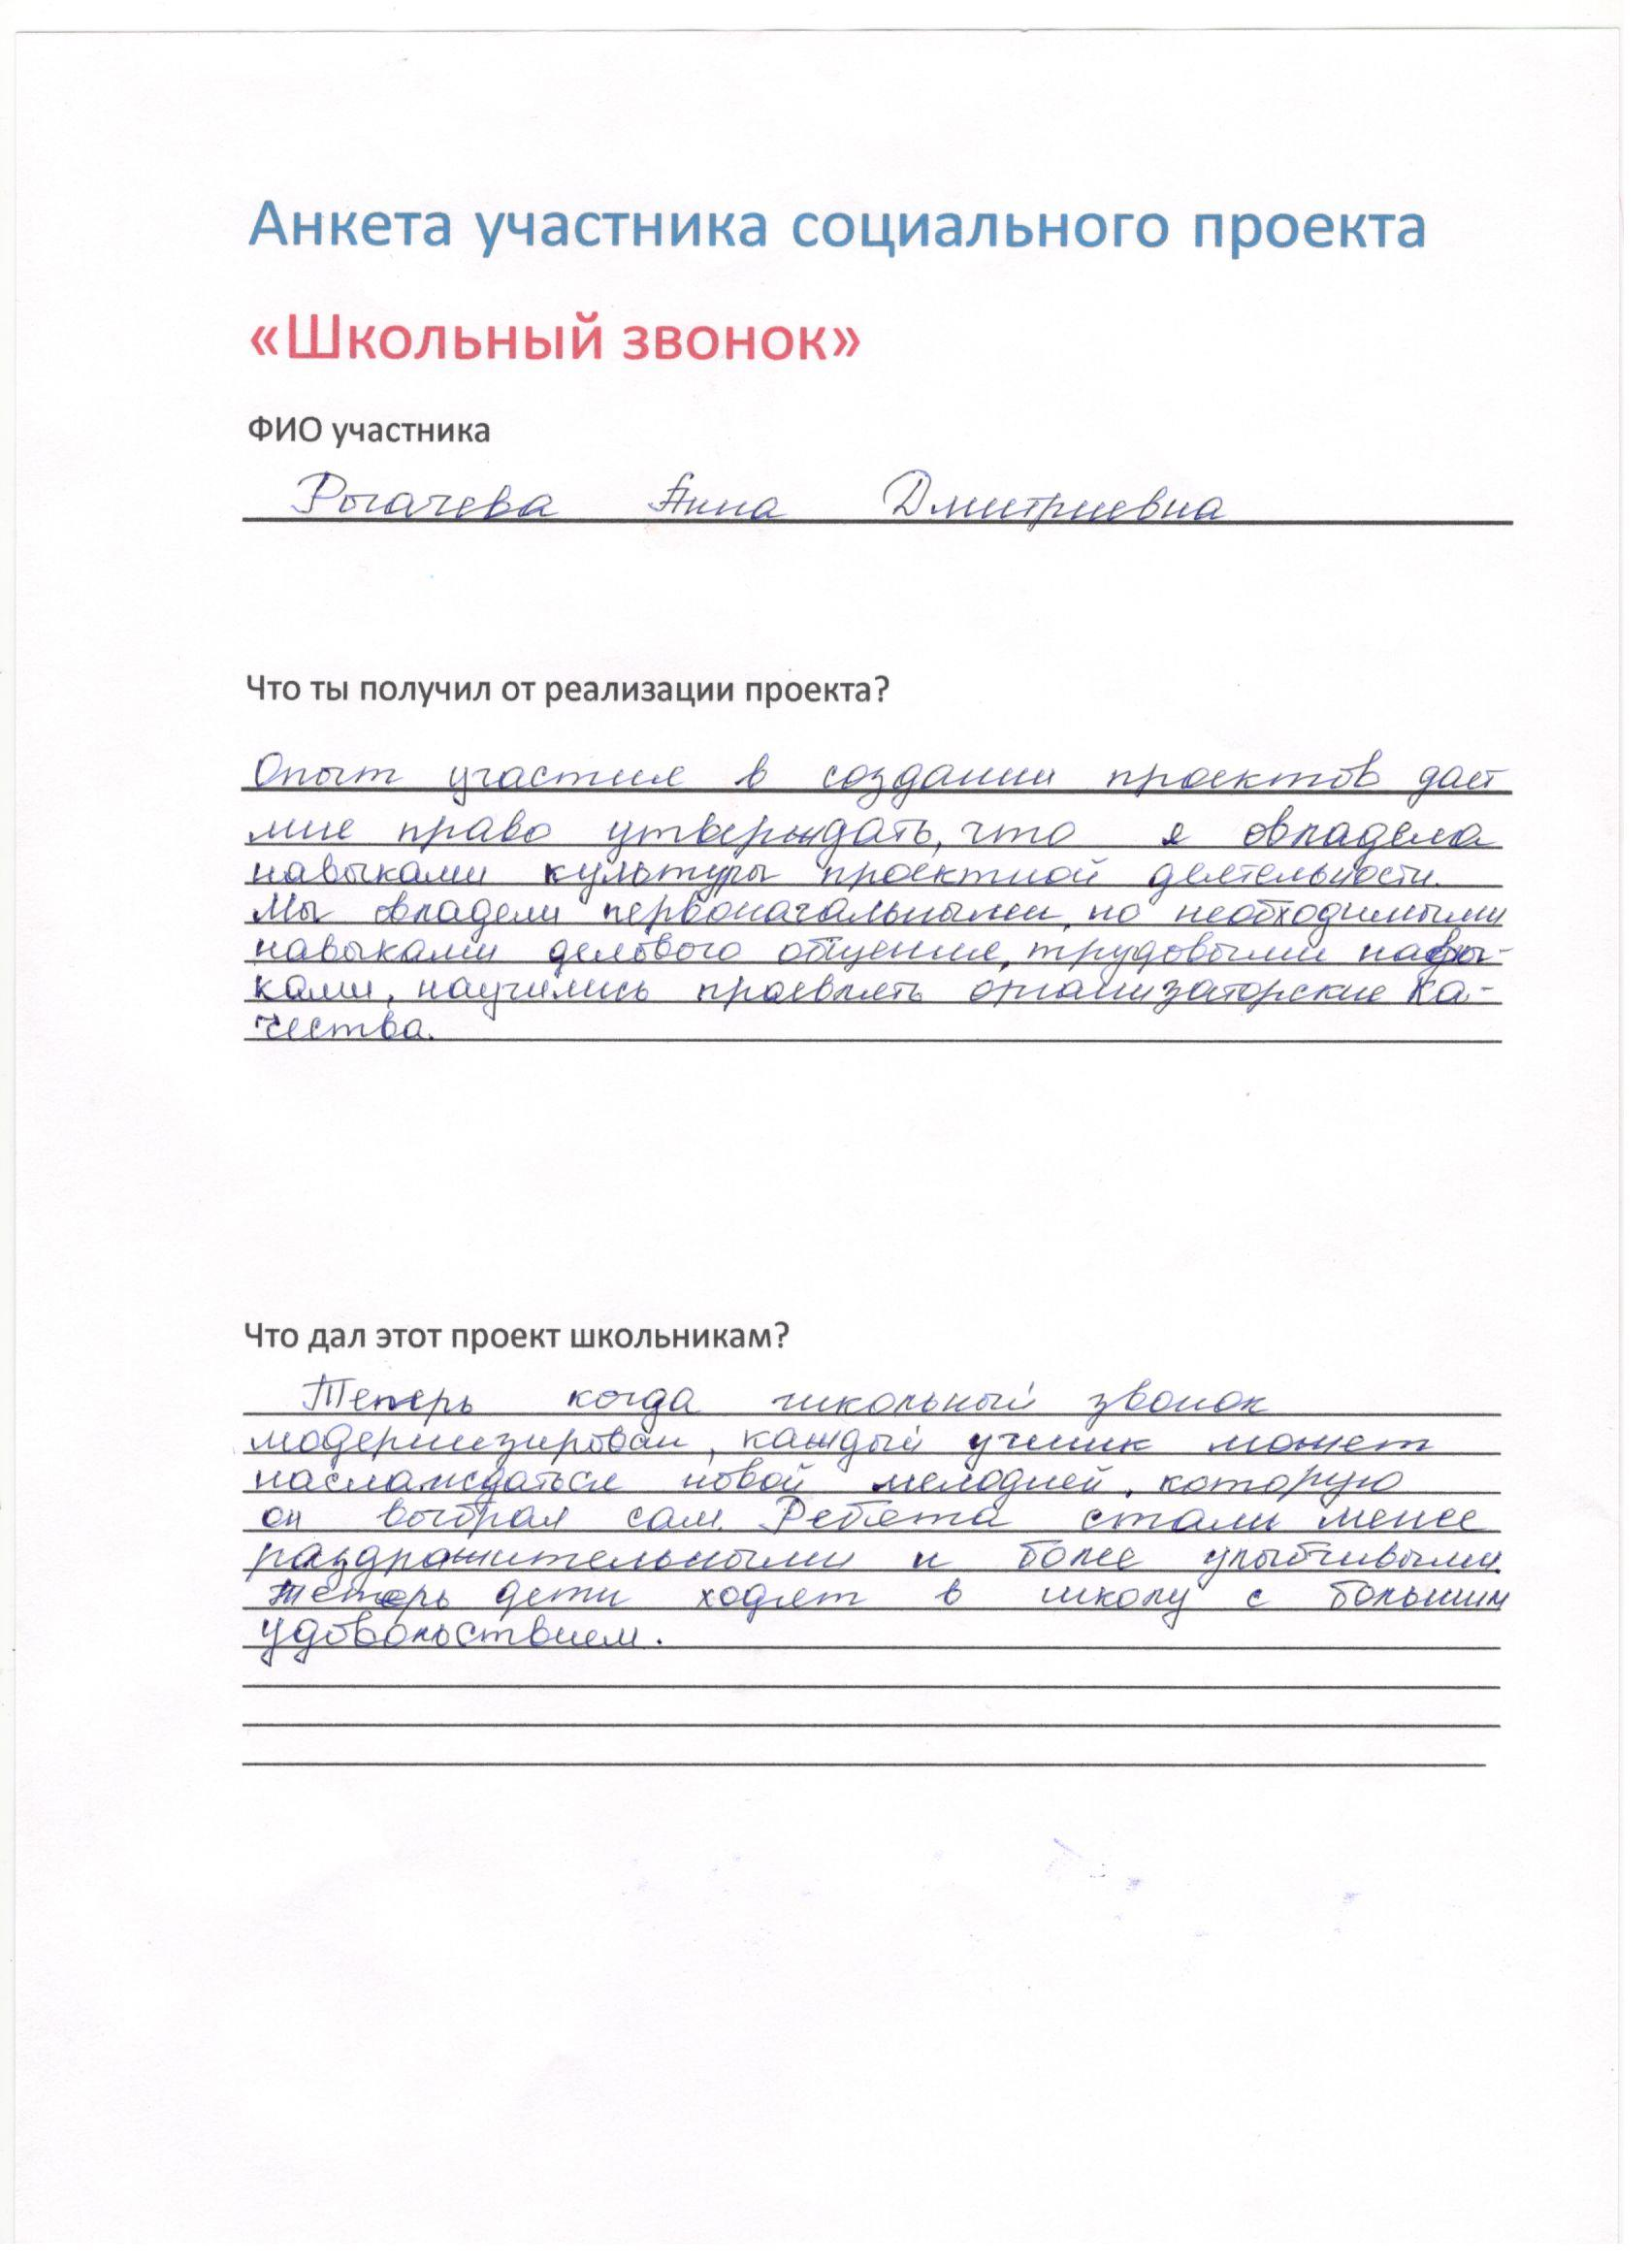 Анкета участника социального проекта
«Школьный звонок»
ФИО участника
Рогачева Анна Дмитриевна
Что ты получил от реализации проекта?
Опыт участия в создании проектов дает
мне право утверждать, что я овладела
навыками культуры проектной деятельности.
Мы овладели первоначальными, но необходимыми
навыками делового общения, трудовыми навы-
ками, научились проявлять организаторские ка-
чества.
Что дал этот проект школьникам?
Теперь когда школьный звонок
модернизирован, каждый ученик может
наслаждаться новой мелодией, которую
он выбрал сам. Ребята стали менее
раздражительными и более улыбчивыми.
Теперь дети ходят в школу с большим
удовольствием.